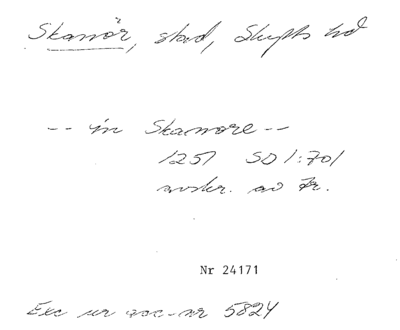 Skanör, stad, Skytts hd
-- in Skanore --
1251 SD 1:701
avskr. av Fr.
Nr 24171
Exc ur acc-nr 5824